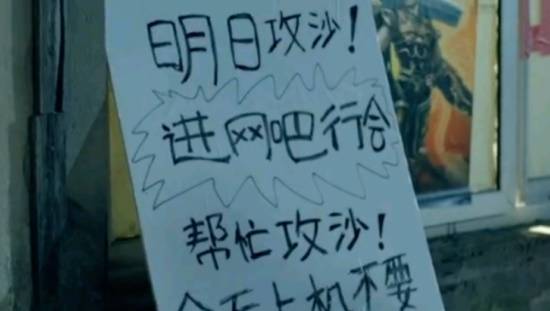 明日攻沙!
进网吧行会
帮忙攻沙!
今天上机不要